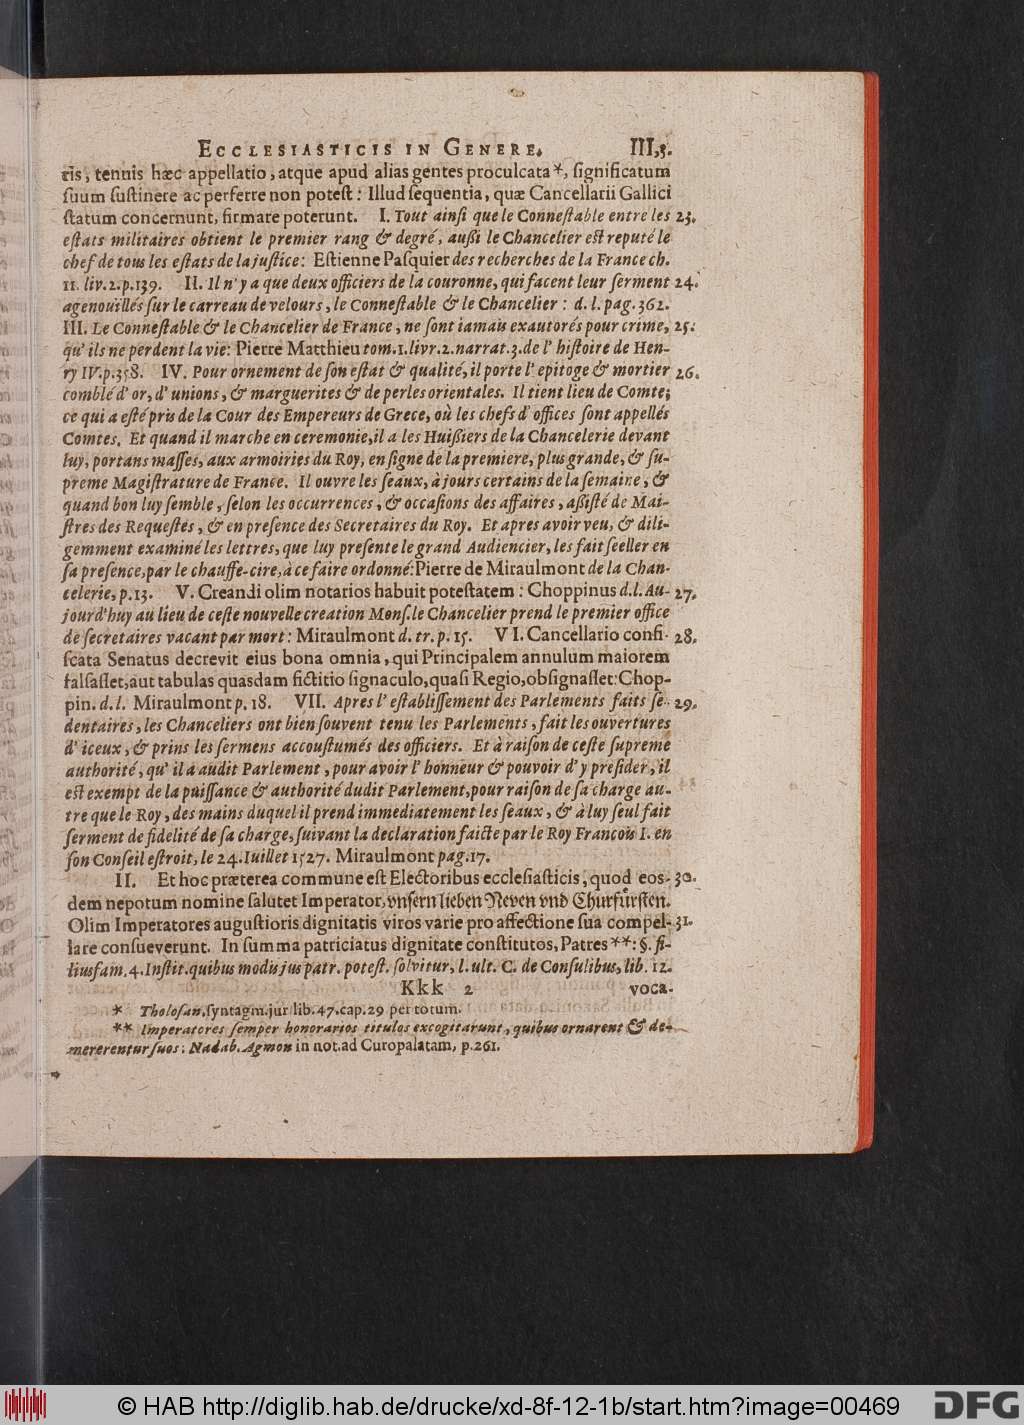 ECCLESIASTICIS IN GENERE. III,3.
ris, tennis hæc appellatio, atque apud alias gentes proculcata*, significatum
suum sustinere ac perferre non potest: Illud sequentia, quæ Cancellarii Gallici
statum concernunt, firmare poterunt. I. Tout ainsi que le Connestable entre les 23.
estats militaires obtient le premier rang & degré, aussi le Chancelier est reputé le
chef de tous les estats de la justice: Estienne Pasquier des recherches de la France ch.
11. liv. 2. p. 139. II. Il n'y a que deux officiers de la couronne, qui facent leur serment 24.
agenouillés sur le carreau de velours, le Connestable & le Chancelier: d. l. pag. 362.
III. Le Connestable & le Chancelier de France, ne sont iamais exautorés pour crime, 25.
qu'ils ne perdent la vie: Pierre Matthieu tom. 1. livr. 2. narrat. 3. de l'histoire de Hen-
ry IV. p. 358. IV. Pour ornement de son estat & qualité, il porte l'epitoge & mortier 26.
comblé d'or, d'unions, & marguerites & de perles orientales. Il tient lieu de Comte;
ce qui a esté pris de la Cour des Empereurs de Grece, où les chefs d'offices sont appellés
Comtes. Et quand il marche en ceremonie, il a les Huissiers de la Chancelerie devant
luy, portans masses, aux armoiries du Roy, en signe de la premiere, plus grande, & su-
preme Magistrature de France. Il ouvre les seaux, à jours certains de la semaine, &
quand bon luy semble, selon les occurrences, & occasions des affaires, assisté de Mai-
stres des Requestes, & en presence des Secretaires du Roy. Et apres avoir veu, & dili-
gemment examiné les lettres, que luy presente le grand Audiencier, les fait seeller en
sa presence, par le chauffe-cire, à ce faire ordonné: Pierre de Miraulmont de la Chan-
celerie, p. 13. V. Creandi olim notarios habuit potestatem: Choppinus d. l. Au- 27.
jourd'huy au lieu de ceste nouvelle creation Mons. le Chancelier prend le premier office
de secretaires vacant par mort: Miraulmont d. tr. p. 15. VI. Cancellario confi- 28.
scata Senatus decrevit eius bona omnia, qui Principalem annulum maiorem
falsasset, aut tabulas quasdam fictitio signaculo, quasi Regio, obsignasset: Chop-
pin. d. l. Miraulmont p. 18. VII. Apres l'establissement des Parlements faits se- 29.
dentaires, les Chanceliers ont bien souvent tenu les Parlements, fait les ouvertures
d'iceux, & prins les sermens accoustumés des officiers. Et à raison de ceste supreme
authorité, qu'il a audit Parlement, pour avoir l'honneur & pouvoir d'y presider, il
est exempt de la puissance & authorité dudit Parlement, pour raison de sa charge au-
tre que le Roy, des mains duquel il prend immediatement les seaux, & à luy seul fait
serment de fidelité de sa charge, suivant la declaration faicte par le Roy François I. en
son Conseil estroit, le 24. Iuillet 1527. Miraulmont pag. 17.
II. Et hoc præterea commune est Electoribus ecclesiasticis, quod eos- 30.
dem nepotum nomine salutet Imperator, vnsern lieben Neven vnd Churfürsten.
Olim Imperatores augustioris dignitatis viros varie pro affectione sua compel- 31.
lare consueverunt. In summa patriciatus dignitate constitutos, Patres**: §. fi-
liusfam. 4. Instit. quibus modis jus patr. potest. solvitur, l. ult. C. de Consulibus, lib. 12.
Kkk 2 voca-
* Tholosan. syntagm. jur lib. 47. cap. 29 per totum.
** Imperatores semper honorarios titulos excogitarunt, quibus ornarent & de-
mererentur suos: Nadab. Agmon in not. ad Curopalatam, p. 261.
© HAB http://diglib.hab.de/drucke/xd-8f-12-1b/start.htm?image=00469 DFG